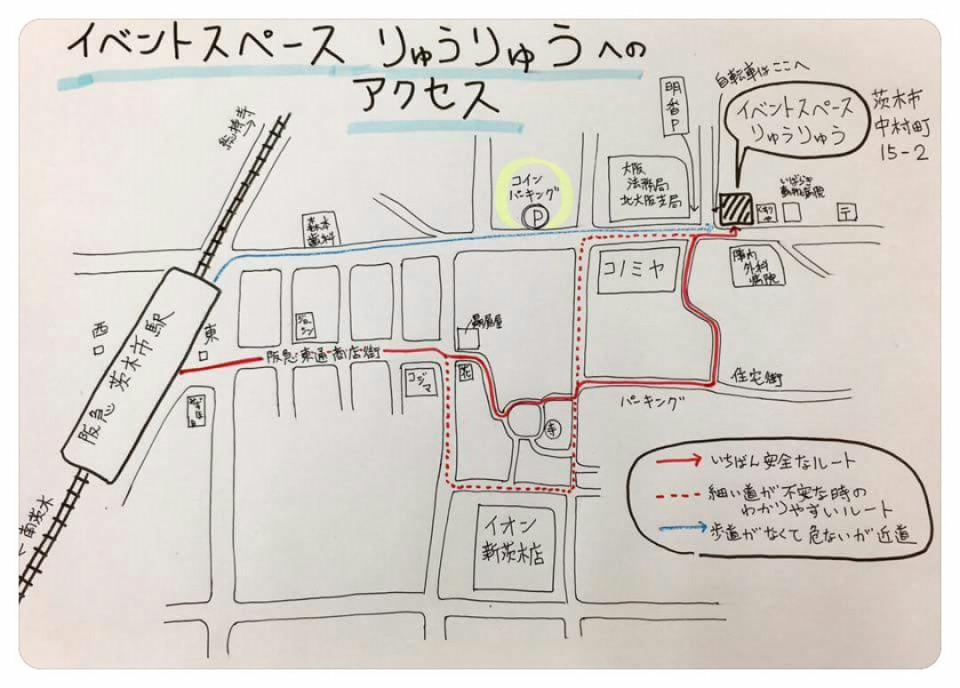 イベントスペース りゅうりゅうへの
アクセス
自転車はここへ
イベントスペース
りゅうりゅう
茨木市
中村町
15-2
明番P
総持寺→
コイン
パーキング
P
大阪
法務局
北大阪支局
いばらき
〒
森本
歯科
コノミヤ
外科
病院
西
東
阪急 茨木市駅
ジョーシン
阪急東通商店街
コジマ
花
寺
住宅街
パーキング
いちばん安全なルート
細い道が不安な時の
わかりやすいルート
歩道がなくて危ないが近道
イオン
新茨木店
南茨木